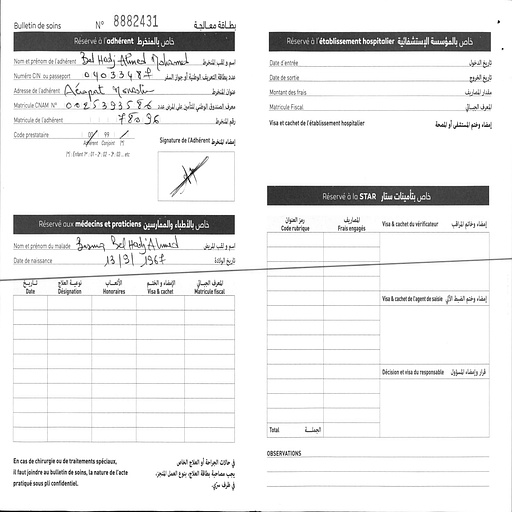 Bulletin de soins N° 8882431 بطاقة معالجة
Réservé à l'adhérent خاص بالمنخرط
Nom et prénom de l'adhérent Bel Hadj Ahmed Mohamed اسم و لقب المنخرط
Numéro CIN ou passeport عدد بطاقة التعريف الوطنية أو جواز السفر
Adresse de l'adhérent Monastir عنوان المنخرط
Matricule CNAM N° 0025393586 معرف الصندوق الوطني للتأمين على المرض عدد
Matricule de l'adhérent 78096 رقم المنخرط
Code prestataire 00 99 (*)
Adhérent Conjoint (*)
(*) : Enfant 1er : 01 - 2e : 02 - 3e : 03 ... etc
Signature de l'Adhérent إمضاء المنخرط
Réservé aux médecins et praticiens خاص بالأطباء والممارسين
Nom et prénom du malade Bel Hadj Ahmed اسم و لقب المريض
Date de naissance 13/9/1967 تاريخ الولادة
تاريخ نوعية العلاج الأتعاب الإمضاء و الختم المعرف الجبائي
Date Désignation Honoraires Visa & cachet Matricule fiscal
En cas de chirurgie ou de traitements spéciaux,
il faut joindre au bulletin de soins, la nature de l'acte
pratiqué sous pli confidentiel.
في حالات الجراحة أو العلاج الخاص
يجب مصاحبة بطاقة العلاج، بنوع العمل المنجز،
في ظرف سري.
Réservé à l'établissement hospitalier خاص بالمؤسسة الإستشفائية
Date d'entrée تاريخ الدخول
Date de sortie تاريخ الخروج
Montant des frais مقدار المصاريف
Matricule Fiscal المعرف الجبائي
Visa et cachet de l'établissement hospitalier إمضاء وختم المستشفى أو المصحة
Réservé à la STAR خاص بتأمينات ستار
رمز العنوان المصاريف
Code rubrique Frais engagés
Visa & cachet du vérificateur إمضاء وخاتم المراقب
Visa & cachet de l'agent de saisie إمضاء وختم الضبط الآلي
Décision et visa du responsable قرار وإمضاء المسؤول
Total الجملة
OBSERVATIONS